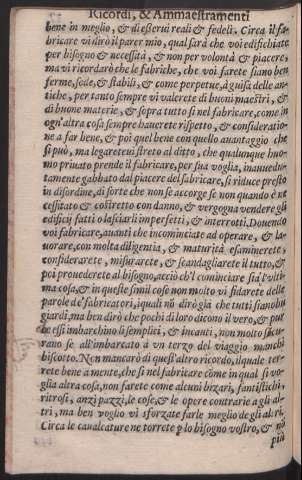 Ricordi, & Ammaestramenti
bene in meglio, & di esserui reali & fedeli. Circa il fa-
bricare vi dirò il parer mio, qual sarà che voi edifichiate
per bisogno & necessità, & non per volontà & piacere,
ma vi ricordarò che le fabriche, che voi farete siano ben
ferme, sode, & stabili, & come perpetue, à guisa delle an-
tiche, per tanto sempre vi valerete di buoni maestri, &
di buone materie, & sopra tutto sì nel fabricare, come in
ogn'altra cosa sempre hauerete rispetto, & consideratio-
ne a far bene, & poi quel bene con quello auantaggio che
si può, ma legareteui streto al ditto, che qualunque huo-
mo priuato prende il fabricare, per sua voglia, inauuedu-
tamente gabbato dal piacere del fabricare, si riduce presto
in disordine, di sorte che non se accorge se non quando è ne
cessitato & costretto con danno, & vergogna vendere gli
edificij fatti o lasciarli imperfetti, & interrotti. Douendo
voi fabricare, auanti che incominciate ad operare, & la-
uorare, con molta diligentia, & maturità esaminerete,
considerarete, misurarete, & scandagliarete il tutto, &
poi prouederete al bisogno, acciò ch'l cominciare sia l'vlti
ma cosa, & in queste simil cose non molto vi fidarete delle
parole de' fabricatori, i quali nõ dirò già che tuti siano bu
giardi, ma ben dirò che pochi di loro dicono il vero, & pur
che essi imbarchino li semplici, & incauti, non molto si cu-
rano se all'imbarcato à vn terzo del viaggio manchi
biscotto. Non mancarò di quest'altro ricordo, il quale ter-
rete bene a mente, che sì nel fabricare come in qual si vo-
glia altra cosa, non farete come alcuni bizari, fantistichi,
ritrosi, anzi pazzi, le cose, & le opere contrarie a gli al-
tri, ma ben voglio vi sforzate farle meglio de gli altri.
Circa le caualcature ne torrete p lo bisogno vostro, & nõ
più